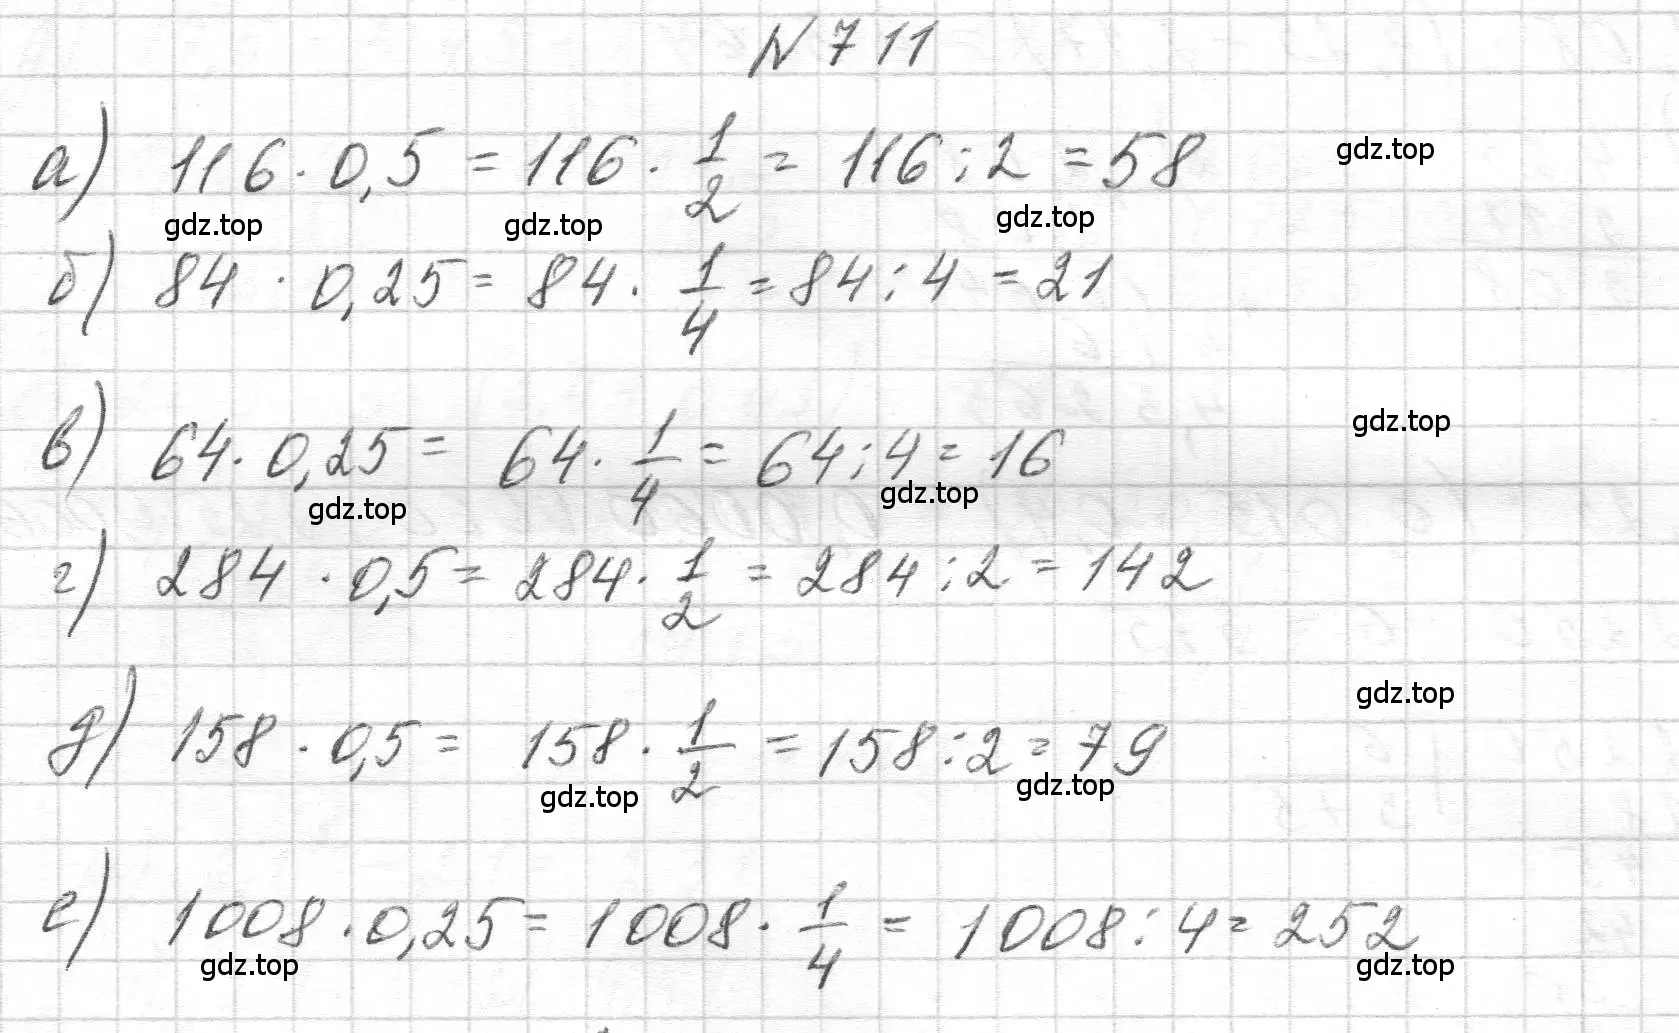 N 711
а) 116 · 0,5 = 116 · 1/2 = 116 : 2 = 58
gdz.top
gdz.top gdz.top gdz.top
б) 84 · 0,25 = 84 · 1/4 = 84 : 4 = 21
в) 64 · 0,25 = 64 · 1/4 = 64 : 4 = 16
gdz.top
gdz.top gdz.top
г) 284 · 0,5 = 284 · 1/2 = 284 : 2 = 142
д) 158 · 0,5 = 158 · 1/2 = 158 : 2 = 79
gdz.top
gdz.top gdz.top
е) 1008 · 0,25 = 1008 · 1/4 = 1008 : 4 = 252
gdz.top gdz.top